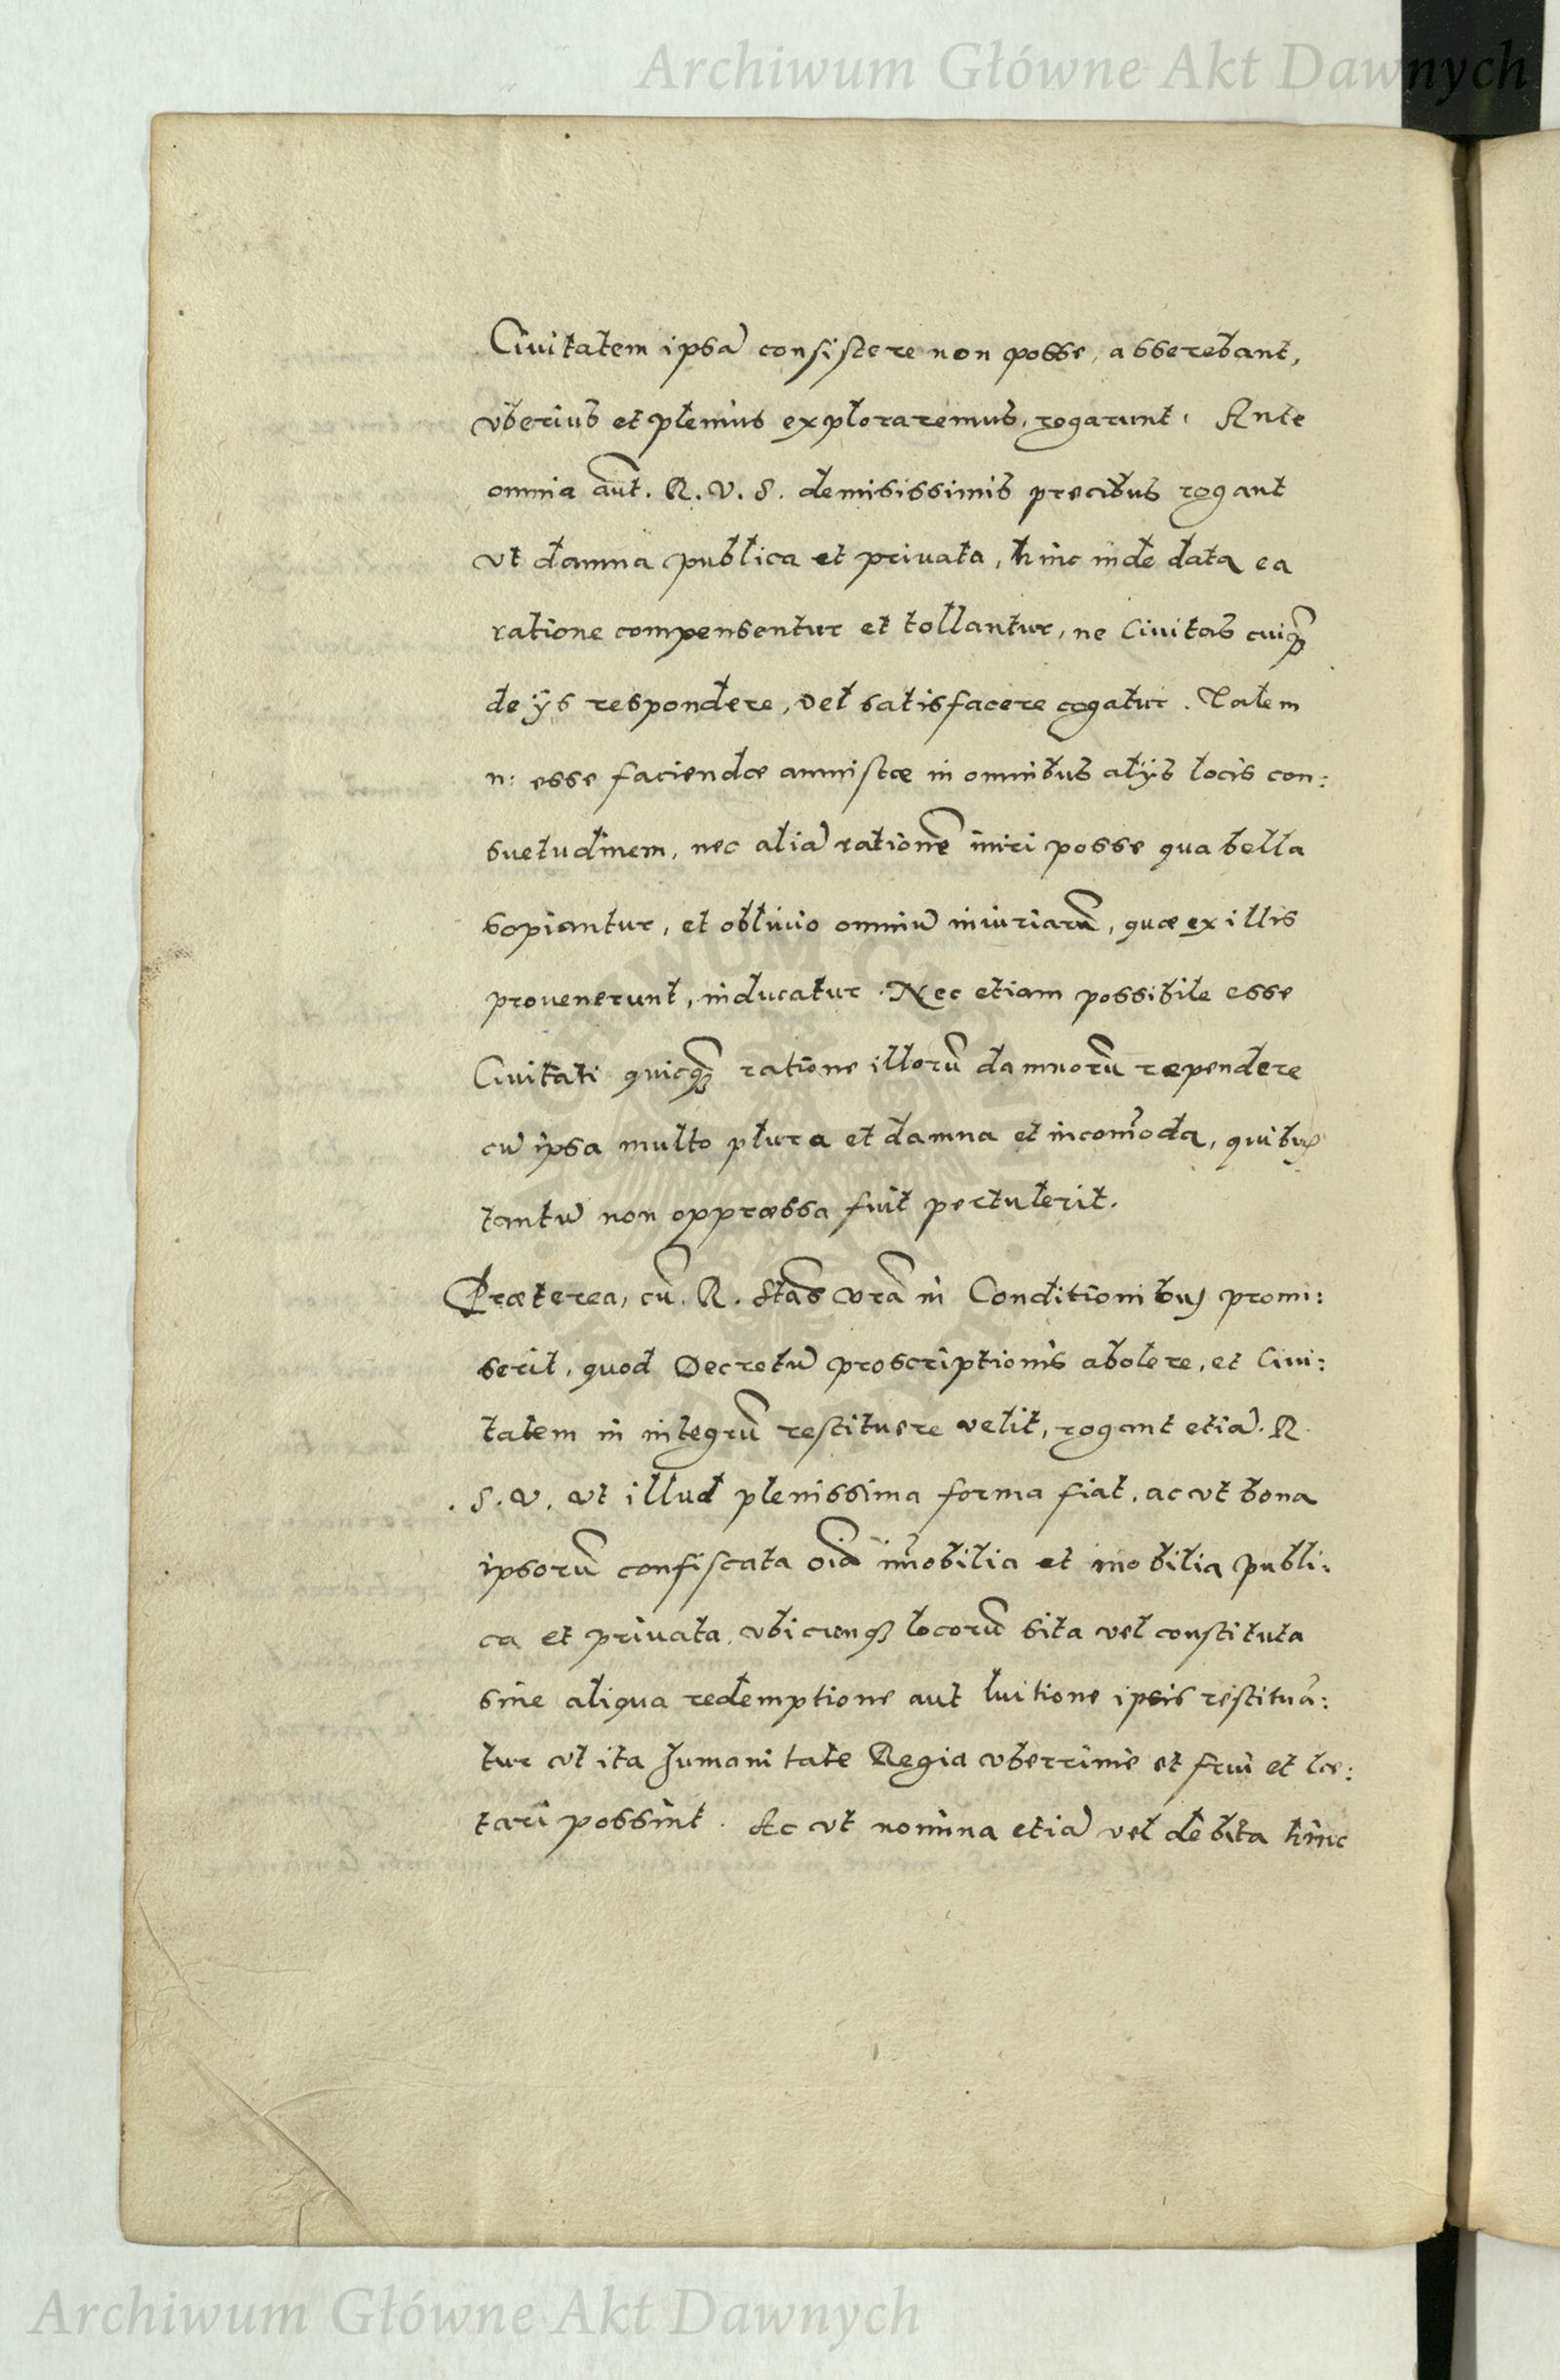 Archiwum Główne Akt Dawnych
Ciuitatem ipsā consistere non posse, asserebant,
vberius et plenius exploraremus, rogarunt. Ante
omnia aūt. R. V. S. demisissimis precibus rogant
vt damna publica et priuata, hinc inde data ea
ratione compensentur et tollantur, ne Ciuitas cuiꝗ̃
de ijs respondere, vel satisfacere cogatur. Talem
n: esse faciendæ amnistæ in omnibus alijs locis con:
suetudinem, nec aliā rationē iniri posse qua bella
sopiantur, et obliuio omniū iniuriarū, quæ ex illis
prouenerunt, inducatur. Nec etiam possibile esse
Ciuitati quicꝗ̃ ratione illorū damnorū rependere
cū ipsa multo plura et damna et incom̄oda, quibus
tantū non oppræssa fuit pertulerit.
Præterea, cū. R. Stas vrā in Conditionibus promi:
serit, quod Decretū proscriptionis abolere, et Ciui:
tatem in integrū restituere velit, rogant etiā. R.
. S. V. vt illud plenissima forma fiat, ac vt bona
ipsorū confiscata oīa im̄obilia et mobilia publi:
ca et priuata, vbicunqꝫ locorū sita vel constituta
sine aliqua redemptione aut luitione ipsis restituā:
tur vt ita humanitate Regia vberrime et frui et læ:
tari possint. Ac vt nomina etiā vel debita hinc
Archiwum Główne Akt Dawnych